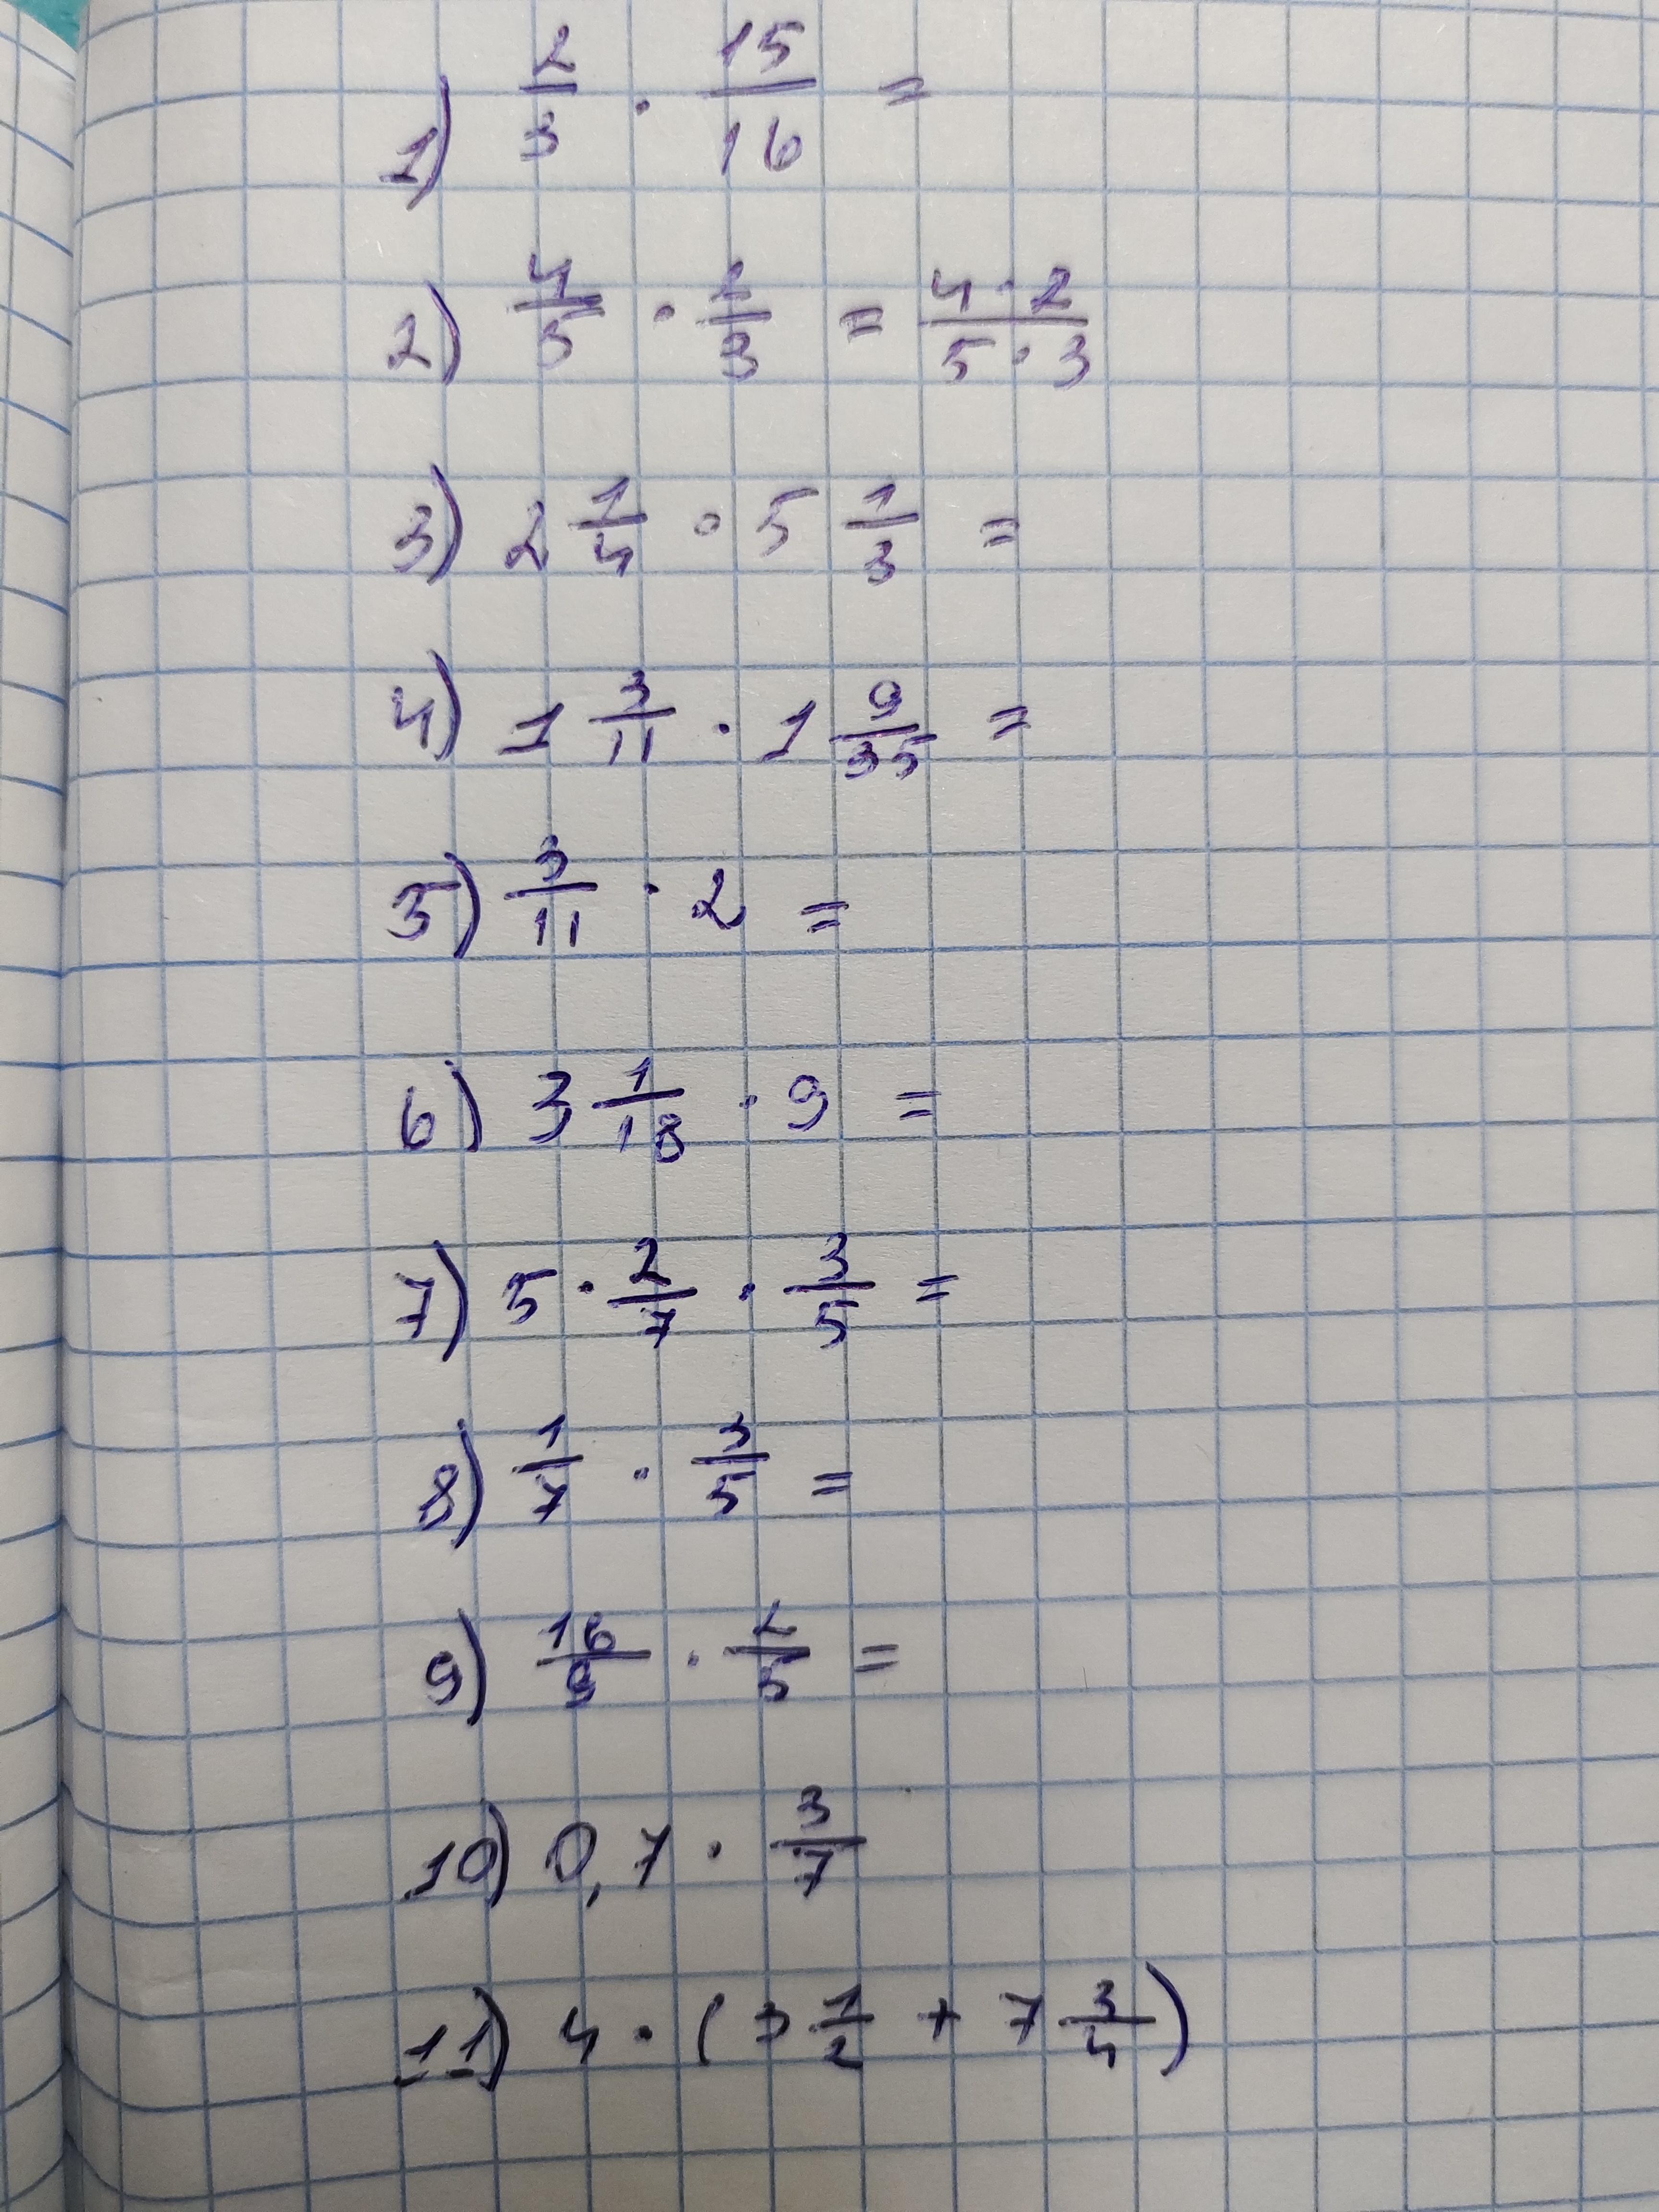 1) 2/3 · 15/16 =
2) 4/5 · 2/3 = 4·2/5·3
3) 2 1/4 · 5 1/3 =
4) 1 3/11 · 1 9/35 =
5) 3/11 · 2 =
6) 3 1/18 · 9 =
7) 5 · 2/7 · 3/5 =
8) 1/7 · 3/5 =
9) 16/9 · 2/5 =
10) 0,7 · 3/7
11) 4 · (3 1/2 + 7 3/4)